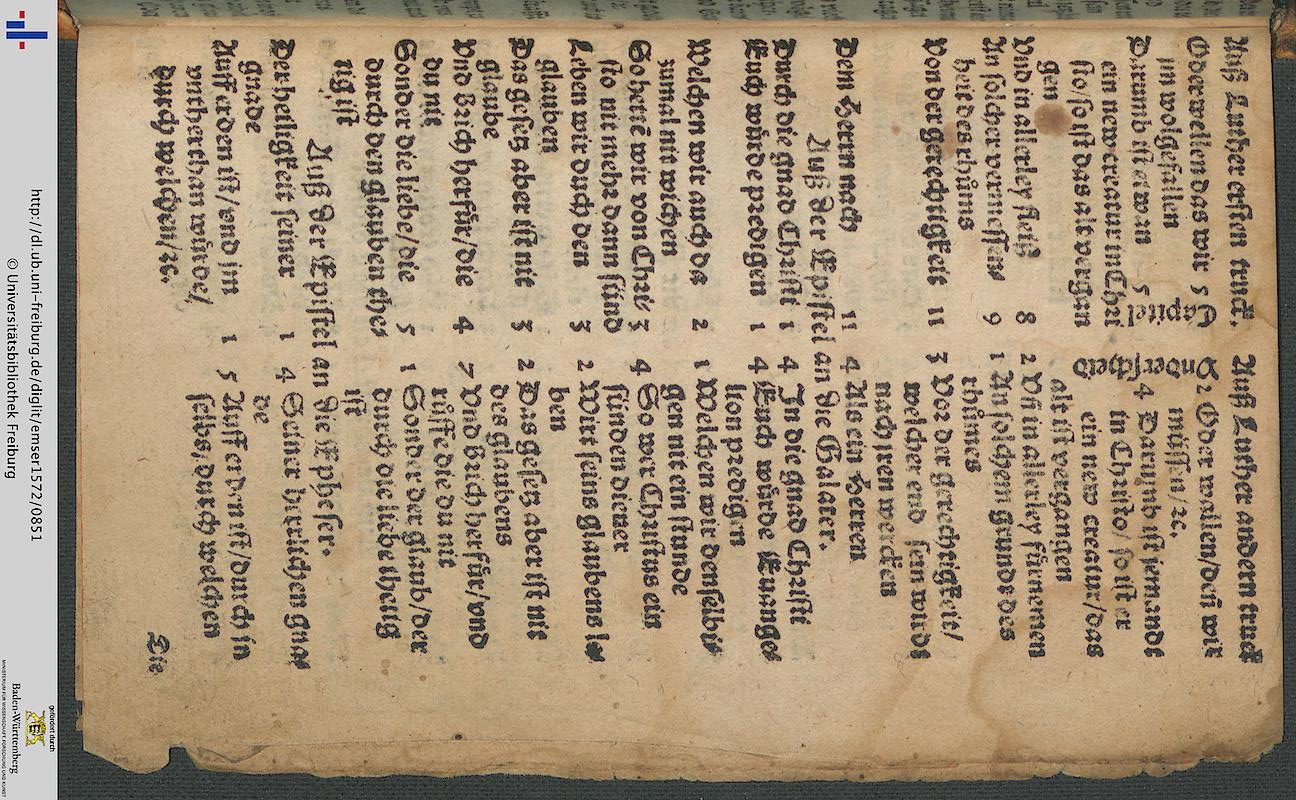 Auß Luther ersten truck. Auß Luther andern truck
Capitel
vnderscheid
Oder wellen das wir 5 2 Oder wallen/deñ wir
im wolgefallen müssen/ꝛc.
Darumb ist er wañ 5 4 Darumb ist jemandt
ein new creatur in Chri in Christo/ so ist er
sto/so ist das alt vergan ein new creatur/das
gen alt ist vergangen
Vnd in allerley fleiß 8 2 Vñ in allerley fürnemen
An solcher vermessen 9 1 An solchem grunde des
heit des rhůms rhůmes
Von der gerechtigkeit 11 3 Vor der gerechtigkeit/
welcher end sein wirdt
nach jren wercken
Dem Herrn nach 11 4 Als ein Herren
Auß der Epistel an die Galater.
Durch die gnad Christi 1 4 In die gnad Christi
Euch würde predigen 1 4 Euch würde Euange
lion predigen
Welchen wir auch da 2 1 Welchen wir denselbē
zumal nit wichen gen nit ein stunde
So hettē wir von Chri 3 4 So wer Christus ein
sto nit mehr dann sünd sünden diener
Leben wir durch den 3 2 Wirt seins glaubens le
glauben ben
Das gesetz aber ist nit 3 2 Das gesetz aber ist nit
glaube des glaubens
Vnd brich herfür/die 4 7 Vnd brich herfür/vnd
du nit rüffe die du nit
Sonder die liebe/die 5 1 Sonder der glaub/der
durch den glauben thet durch die liebe thetig
tig ist ist
Auß der Epistel an die Epheser.
Der heiligkeit seiner 1 4 Seiner herrlichen gna
gnade de
Auff erden ist/vnd jm 1 5 Auff erden ist/durch jn
vntherthan würde/ selbs/durch welchen
durch welchen/ꝛc.
Die
http://dl.ub.uni-freiburg.de/diglit/emser1572/0851
© Universitätsbibliothek Freiburg
gefördert durch
Baden-Württemberg
MINISTERIUM FÜR WISSENSCHAFT, FORSCHUNG UND KUNST